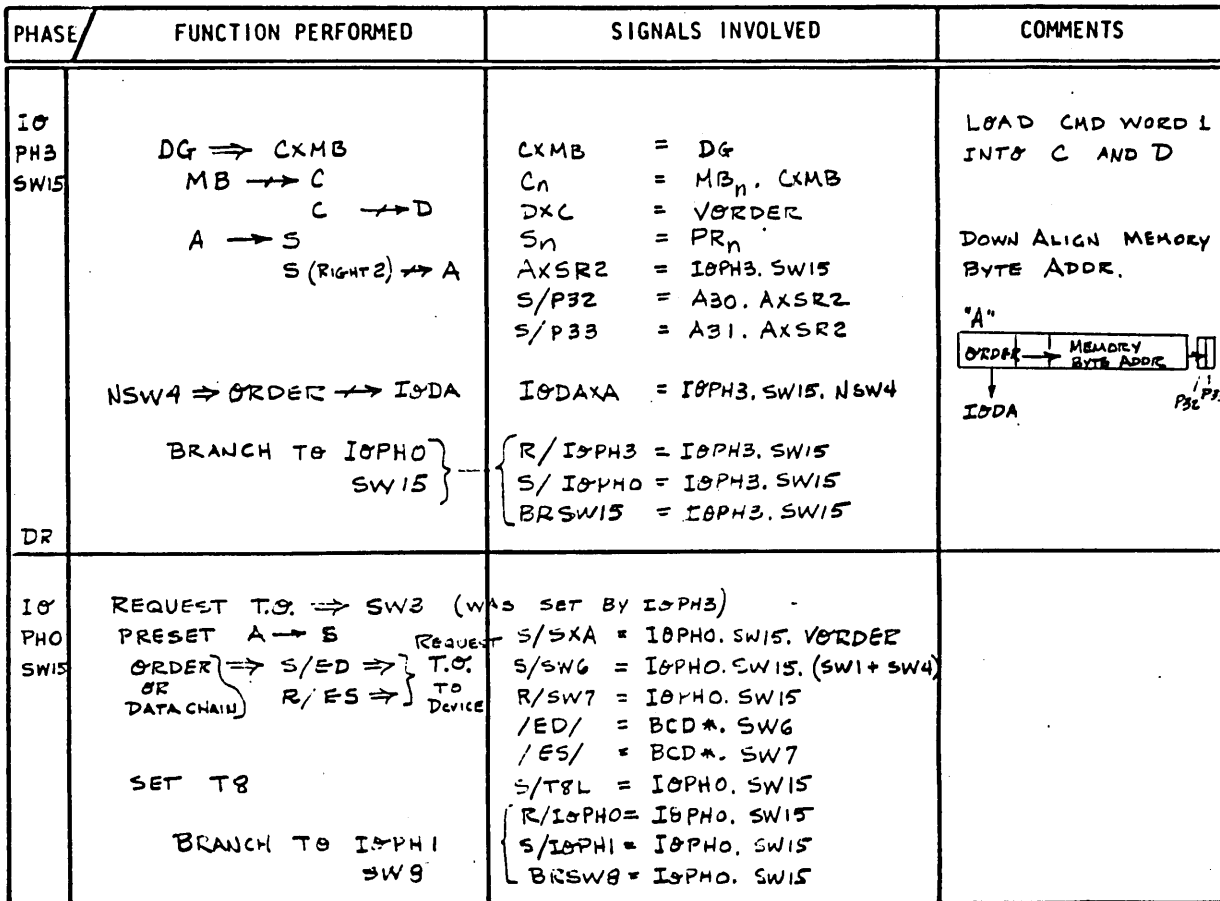 PHASE FUNCTION PERFORMED SIGNALS INVOLVED COMMENTS
IO
PH3
SW15
DG ⇒ CXMB
MB ↛ C
C ↛ D
A → S
S (RIGHT 2) ↛ A
NSW4 ⇒ ORDER ↛ IODA
BRANCH TO IOPH0
SW15
DR
CXMB = DG
Cn = MBn. CXMB
DXC = VORDER
Sn = PRn
AXSR2 = IOPH3. SW15
S/P32 = A30. AXSR2
S/P33 = A31. AXSR2
IODAXA = IOPH3. SW15. NSW4
R/IOPH3 = IOPH3. SW15
S/IOPH0 = IOPH3. SW15
BRSW15 = IOPH3. SW15
LOAD CMD WORD 1
INTO C AND D
DOWN ALIGN MEMORY
BYTE ADDR.
"A"
ORDER → MEMORY
BYTE ADDR
P32 P33
IODA
IO
PH0
SW15
REQUEST T.O. ⇒ SW3 (WAS SET BY IOPH3)
PRESET A → S
ORDER ⇒ S/ED ⇒ REQUEST
OR R/ES ⇒ T.O.
DATA CHAIN TO
DEVICE
SET T8
BRANCH TO IOPH1
SW8
S/SXA = IOPH0. SW15. VORDER
S/SW6 = IOPH0. SW15. (SW1 + SW4)
R/SW7 = IOPH0. SW15
/ED/ = BCD*. SW6
/ES/ = BCD*. SW7
S/T8L = IOPH0. SW15
R/IOPH0 = IOPH0. SW15
S/IOPH1 = IOPH0. SW15
BRSW8 = IOPH0. SW15